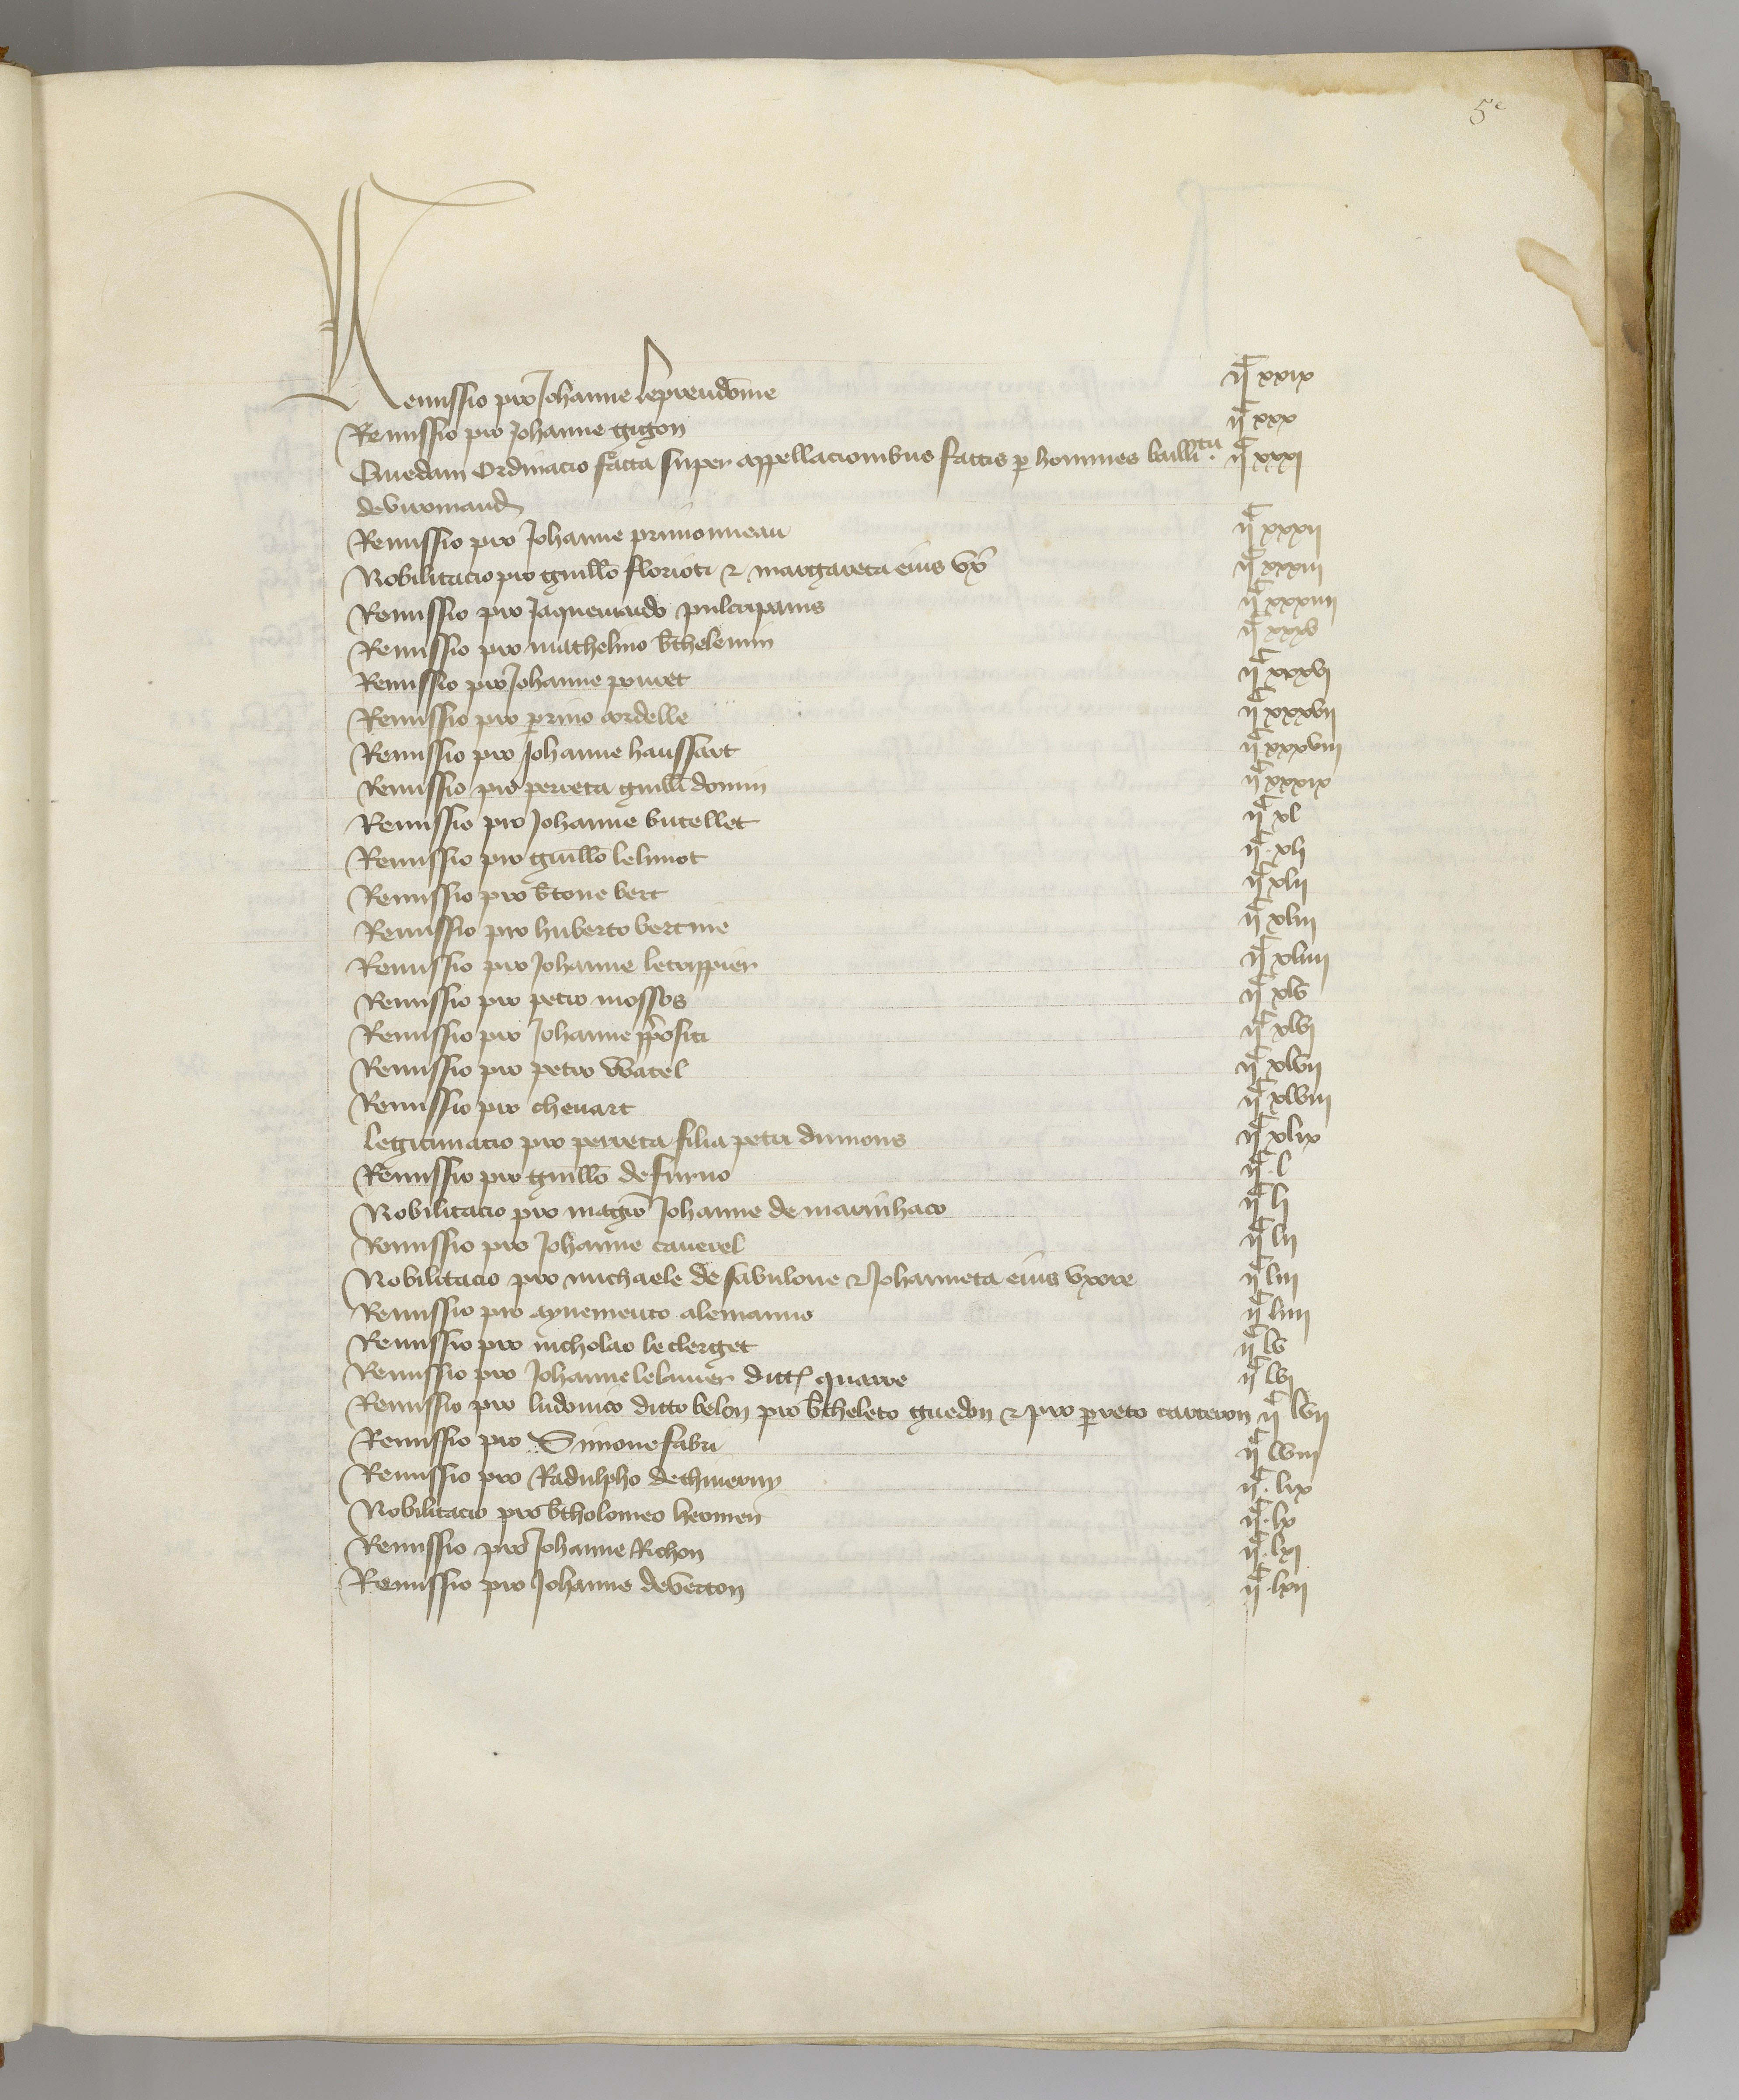 5e
Remissio pro Johanne leprendome IIc xxix
Remissio pro Johanne gigon IIc xxx
Quedam Ordinacio facta super appellacionibus factis p homines bailli.tu IIc xxxi
de viromand
Remissio pro Johanne primonneau IIc xxxii
Nobilitacio pro guillo florioti & margareta eius ux IIc xxxiii
Remissio pro Jaquemardo pulcripanis IIc xxxiiii
Remissio pro mathelino bthelemin IIc xxxv
Remissio pro Johanne pouret IIc xxxvi
Remissio pro prino cordelle IIc xxxvii
Remissio pro Johanne haussart IIc xxxviii
Remissio pro perreta guilli domin IIc xxxix
Remissio pro Johanne butellet IIc xl
Remissio pro guillo lelimot IIc xli
Remissio pro btone vert IIc xlii
Remissio pro huberto bertine IIc xliii
Remissio pro Johanne lecrappier IIc xliiii
Remissio pro petro mossos IIc xlv
Remissio pro Johanne ppositi IIc xlvi
Remissio pro petro Watel IIc xlvii
Remissio pro chenart IIc xlviii
legitimacio pro perreta filia petri dumons IIc xlix
Remissio pro guillo de furno IIc l
Nobilitacio pro magro Johanne de marinhaco IIc li
Remissio pro Johanne caverel IIc lii
Nobilitacio pro michaele de sabulone & Johanneta eius uxore IIc liii
Remissio pro aynemento alemanno IIc liiii
Remissio pro nicholao le clerget IIc lv
Remissio pro Johanne leliner dict quarre IIc lvi
Remissio pro ludovico dicto belon pro btheleto guedon & pro preto carteron IIc lvii
Remissio pro Simone fabri IIc lviii
Remissio pro Radulpho de thiverny IIc lix
Nobilitacio pro btholomeo hermen IIc lx
Remissio pro Johanne Richon IIc lxi
Remissio pro Johanne deverton IIc lxii